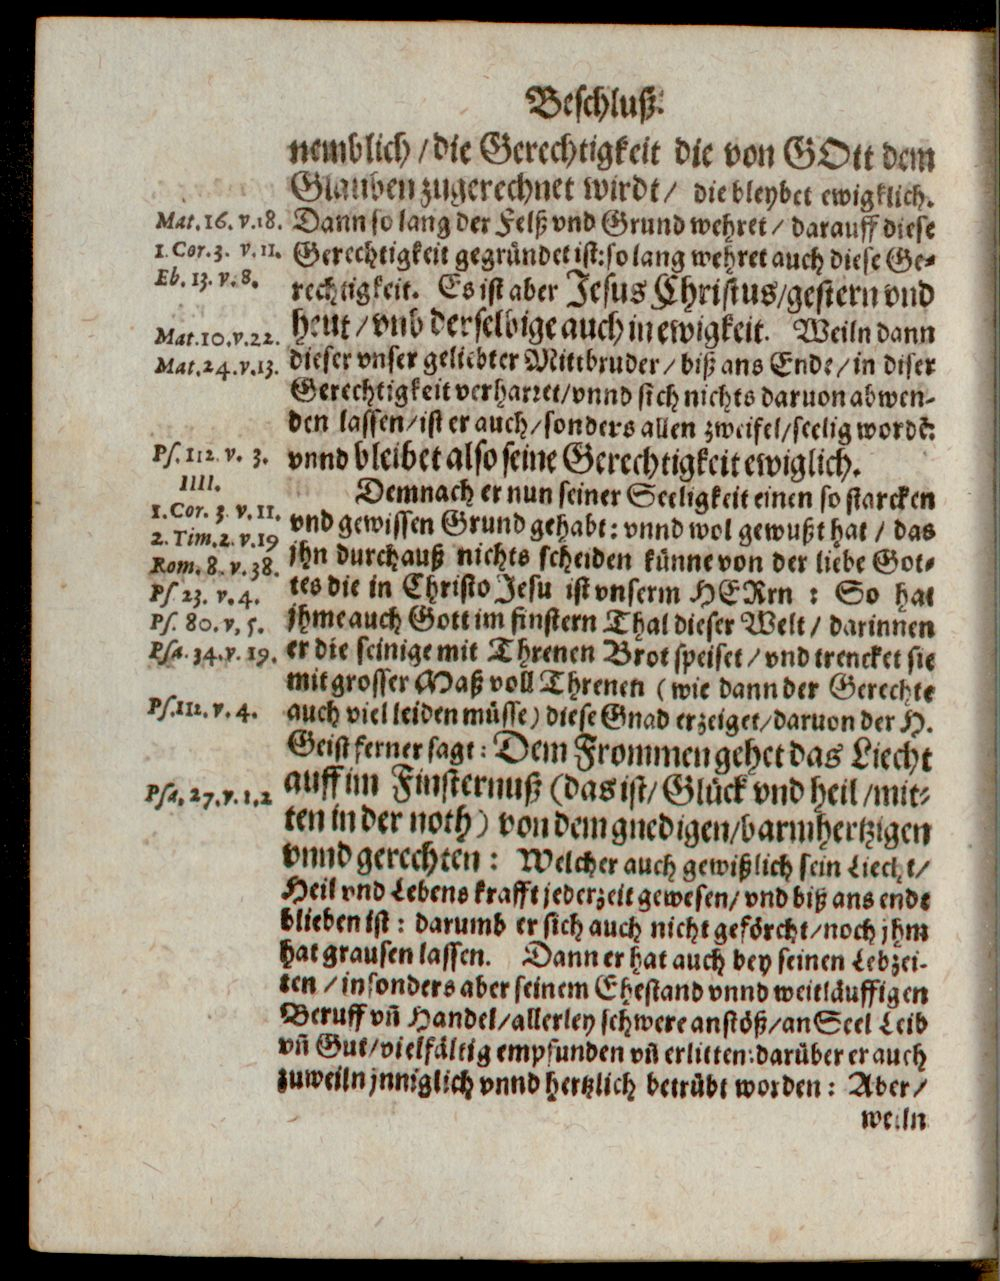 Beschluß.
nemblich / die Gerechtigkeit die von GOtt dem
Glauben zugerechnet wirdt / die bleybet ewigklich.
Mat. 16. v. 18. Dann so lang der Felß vnd Grund wehret / darauff diese
1. Cor. 3. v. 11. Gerechtigkeit gegründet ist: so lang wehret auch diese Ge-
Eb. 13. v. 8. rechtigkeit. Es ist aber Jesus Christus / gestern vnd
heut / vnd derselbige auch in ewigkeit. Weiln dann
Mat. 10. v. 22.
Mat. 24. v. 13. dieser vnser geliebter Mittbruder / biß ans Ende / in diser
Gerechtigkeit verharret / vnnd sich nichts daruon abwen-
den lassen / ist er auch / sonders allen zweifel / seelig wordẽ:
Ps. 112. v. 3. vnnd bleibet also seine Gerechtigkeit ewiglich.
IIII.
Demnach er nun seiner Seeligkeit einen so starcken
1. Cor. 3. v. 11. vnd gewissen Grund gehabt: vnnd wol gewußt hat / das
2. Tim. 2. v. 19
jhn durchauß nichts scheiden künne von der liebe Got-
Rom. 8. v. 38.
Ps 23. v. 4. tes die in Christo Jesu ist vnserm HERrn : So hat
Ps. 80. v, 5. jhme auch Gott im finstern Thal dieser Welt / darinnen
Psa. 34. v. 19. er die seinige mit Threnen Brot speiset / vnd trencket sie
mit grosser Maß voll Threnen (wie dann der Gerechte
Ps. 112. v. 4. auch viel leiden müsse) diese Gnad erzeiget / daruon der H.
Geist ferner sagt: Dem Frommen gehet das Liecht
Psa, 27. v. 1. 2 auff im Finsternuß (das ist / Glück vnd heil / mit-
ten in der noth) von dem gnedigen / barmhertzigen
vnnd gerechten : Welcher auch gewißlich sein Liecht /
Heil vnd Lebens krafft jederzeit gewesen / vnd biß ans ende
blieben ist : darumb er sich auch nicht geförcht / noch jhm
hat grausen lassen. Dann er hat auch bey seinen Lebzei-
ten / insonders aber seinem Ehestand vnnd weitläuffigen
Beruff vñ Handel / allerley schwere anstöß / an Seel Leib
vñ Gut / vielfältig empfunden vñ erlitten: darüber er auch
zuweiln jnniglich vnnd hertzlich betrübt worden : Aber /
weiln